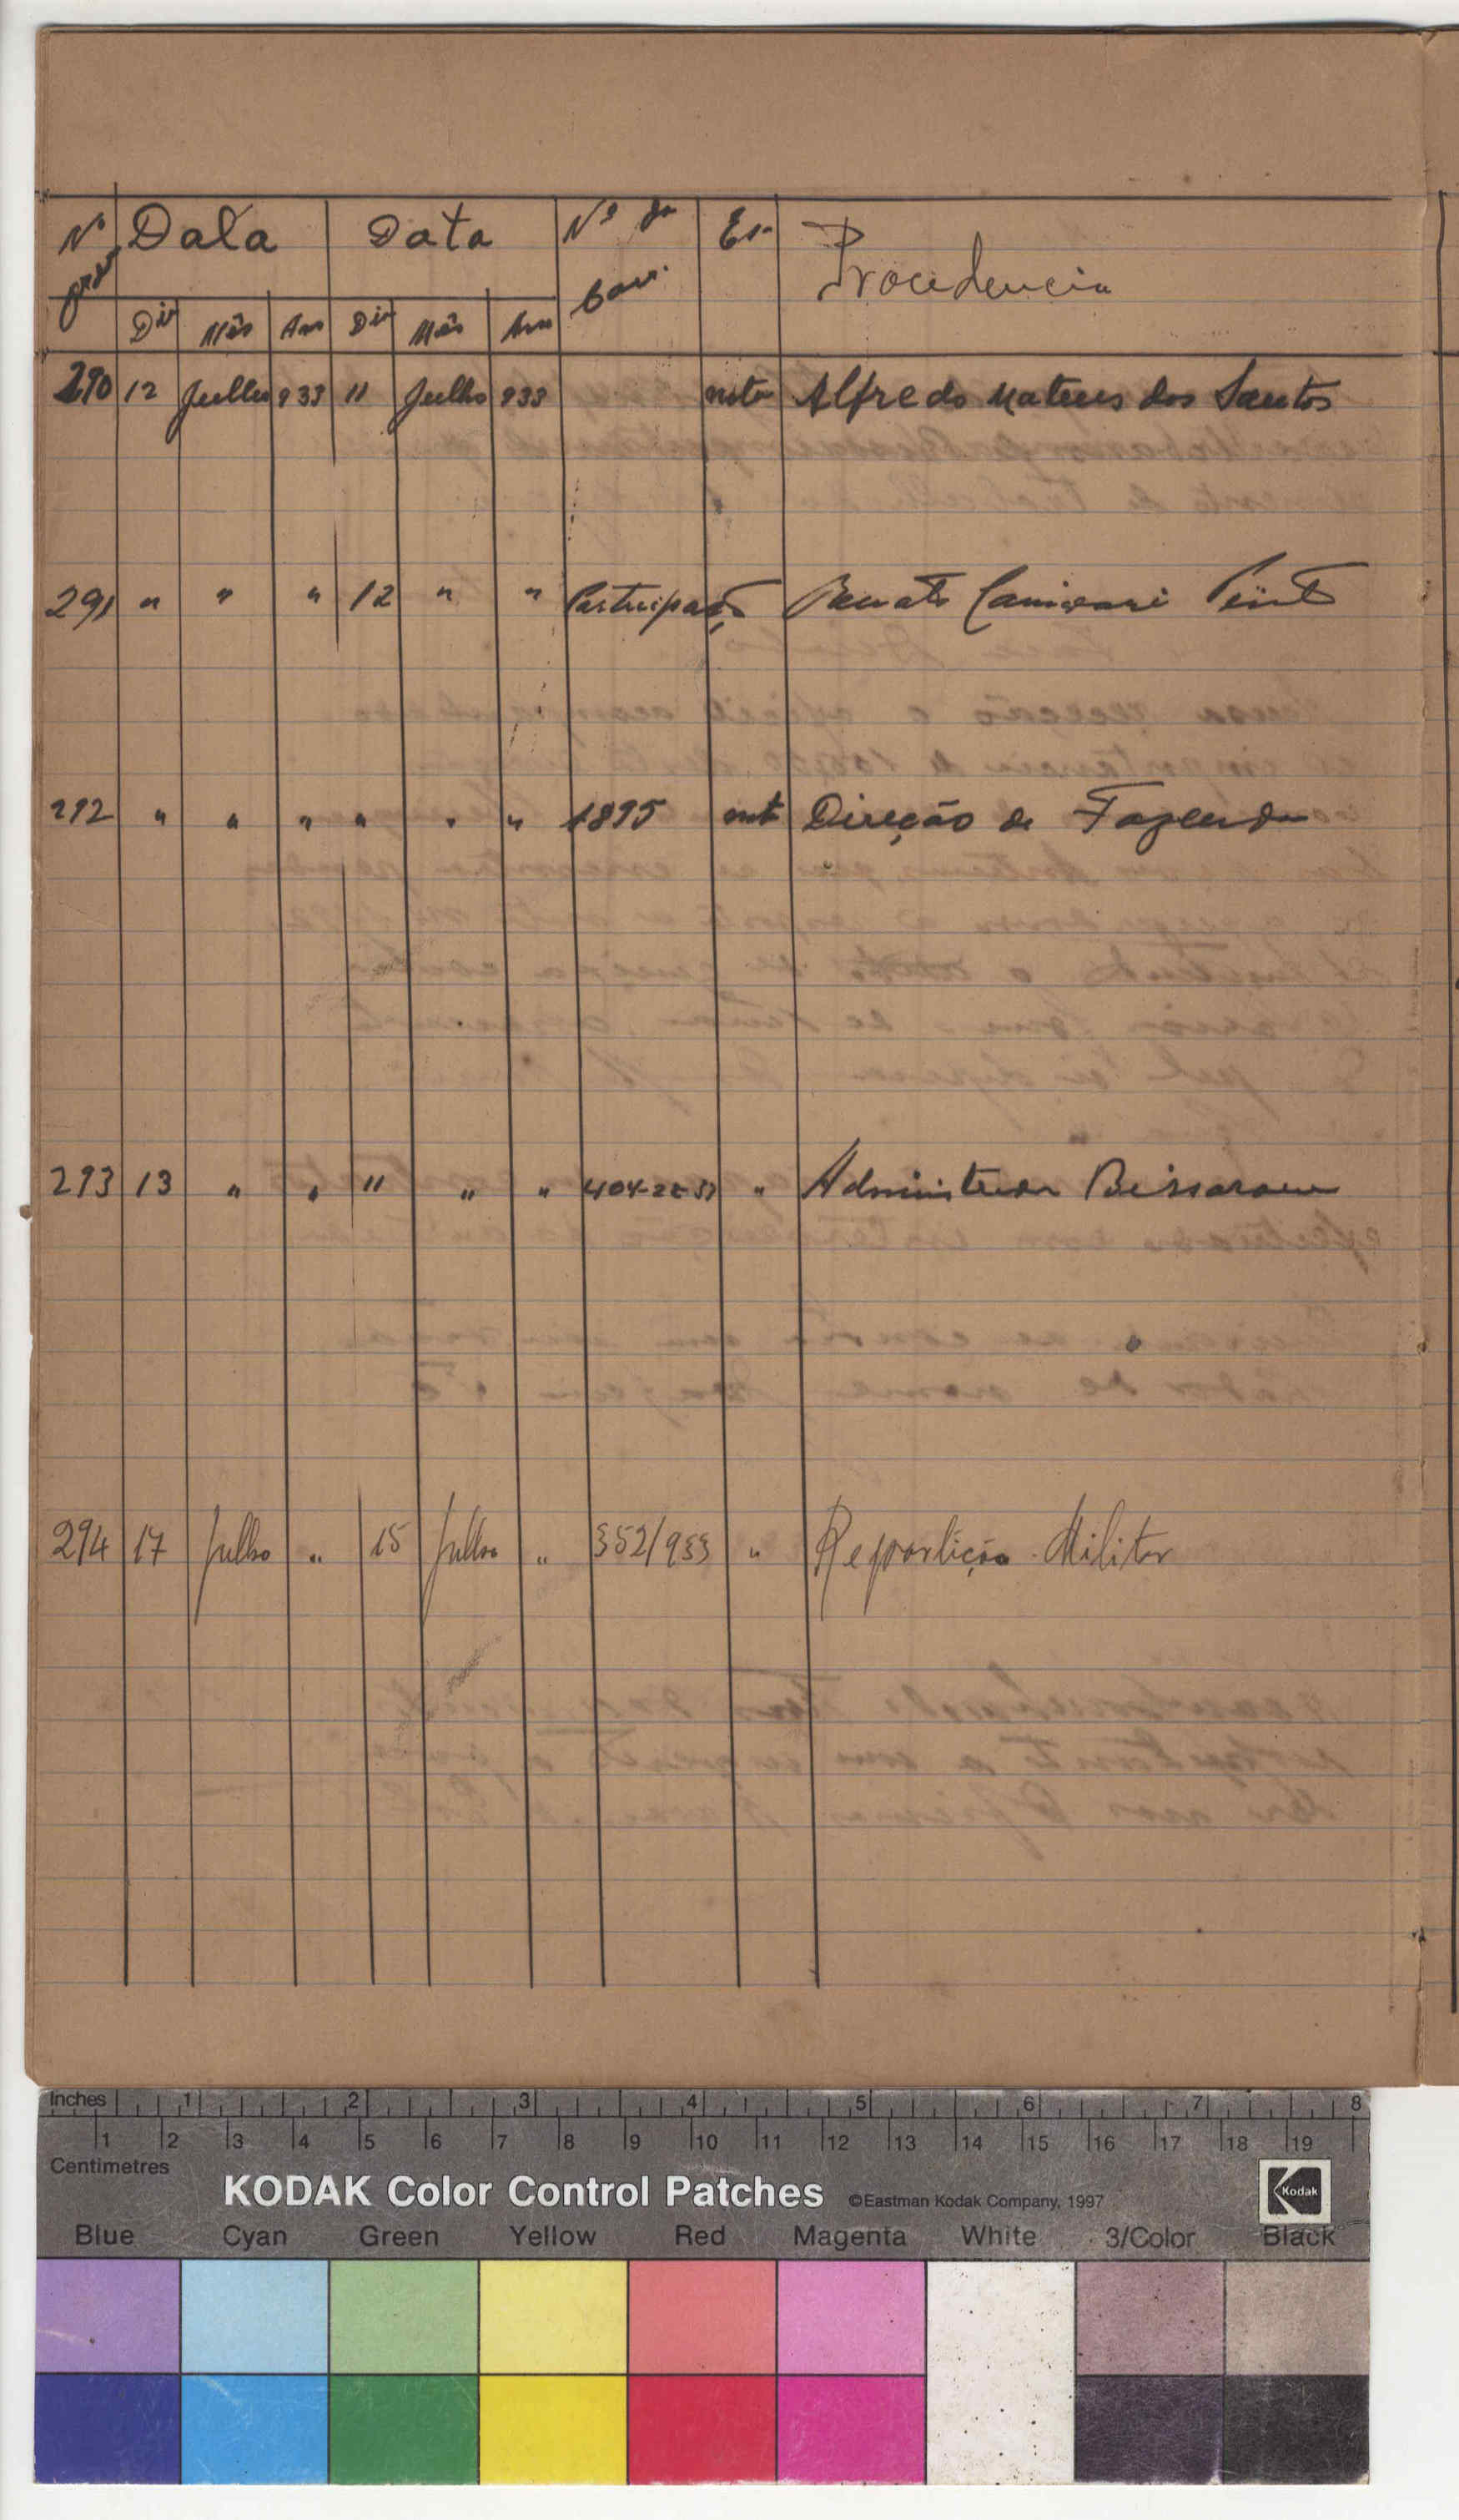 Nº Data Data Nº da Es. Procedencia
Dia Mês Ano Dia Mês Ano
290 12 Julho 933 11 Julho 933 nota Alfredo Mateus dos Santos
291 " " " 12 " " Participação Renato Pinto
292 " " " " " " 1895 nota Direção de Fazenda
293 13 " " 11 " " " Administrador Bissoram
294 17 Julho " 15 Julho " 352/933 " Repartição Militar
Inches 1 2 3 4 5 6 7 8
1 2 3 4 5 6 7 8 9 10 11 12 13 14 15 16 17 18 19
Centimetres
KODAK Color Control Patches ©Eastman Kodak Company, 1997 Kodak
Blue Cyan Green Yellow Red Magenta White 3/Color Black